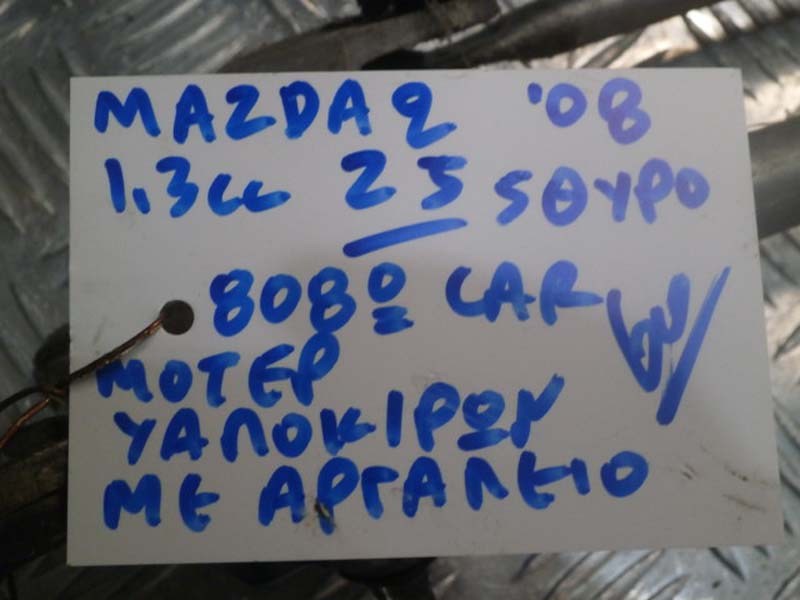 MAZDA 2 '08
1.3cc 25 5ΘΥΡΟ
8080 CAR
ΜΟΤΕΡ
ΥΑΛΟΚΙΡΩΝ
ΜΕ ΑΡΓΑΛΕΙΟ